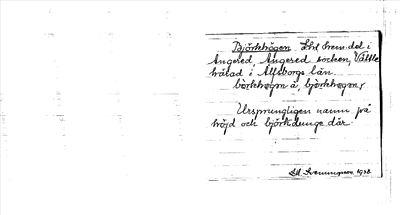 Björkhögen. Lht hem.del i
Angered, Angered socken, Vättle
härad i Älfsborgs län.
börkhøgen å, björkhøgen,
Ursprungligen namn på
höjd och björkdunge där.
1938